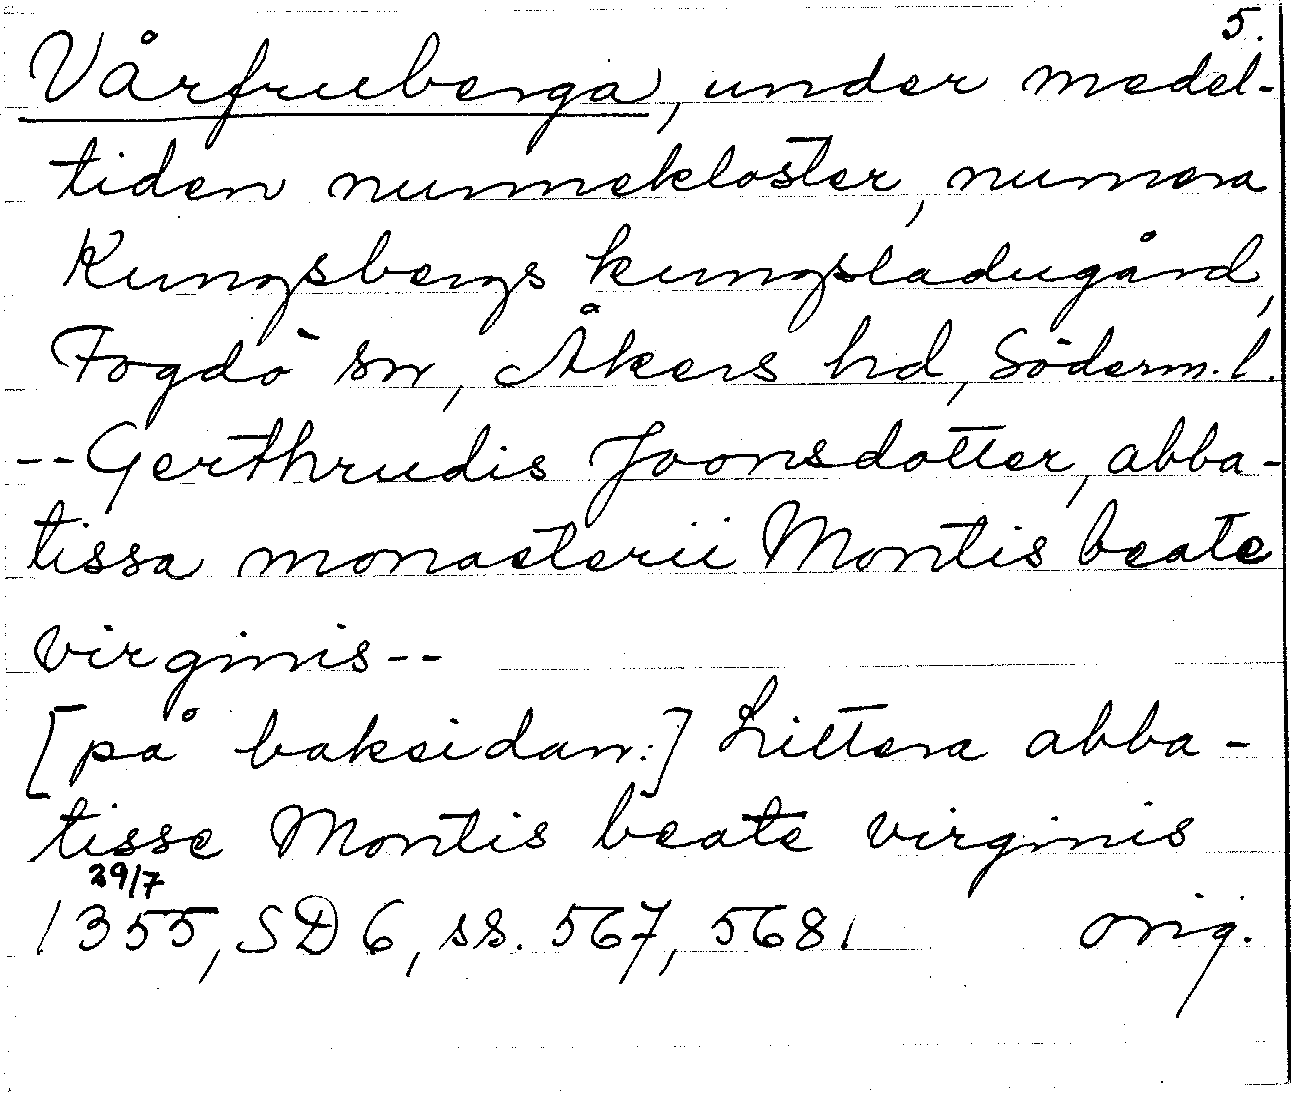 5.
Vårfruberga, under medel-
tiden nunnekloster, numera
Kungsbergs kungsladugård,
Fogdö sn, Åkers hd, Söderm. l.
--Gerthrudis Joonsdotter, abba-
tissa monasterii Montis beate
virginis--
[på baksidan:] Littera abba-
tisse Montis beate virginis
29/7
1355, SD 6, ss. 567, 568. orig.